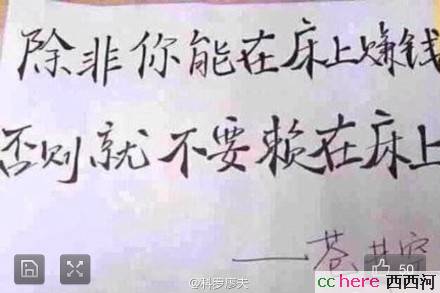 除非你能在床上赚钱
否则就不要赖在床上
——苍井空
50
@科罗廖夫
cchere 西西河